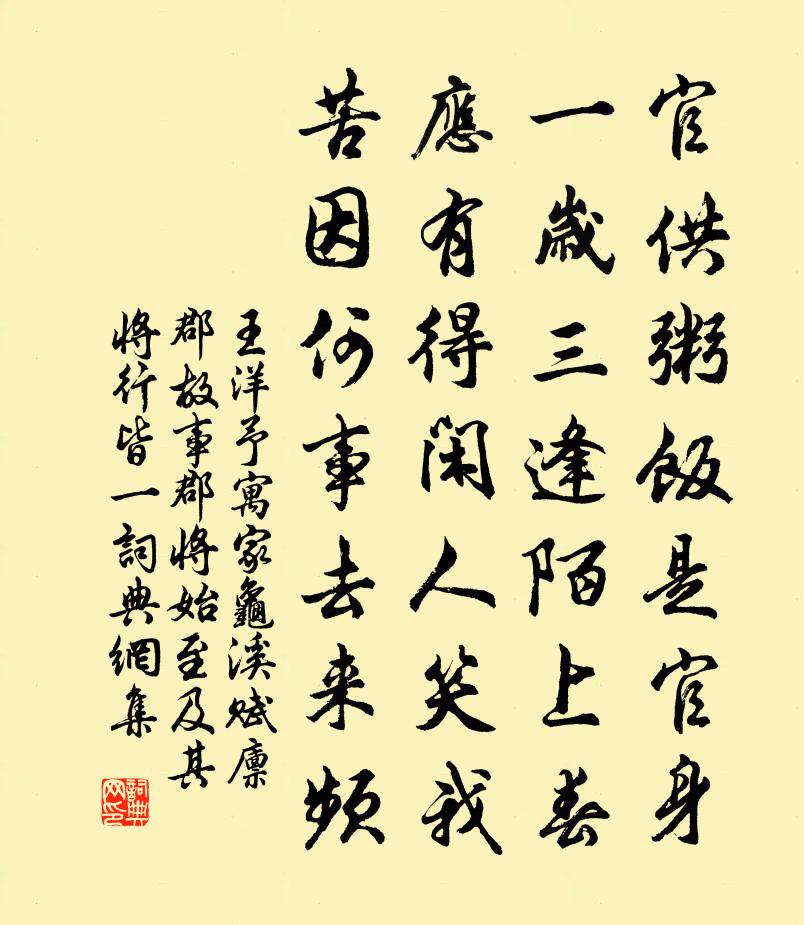 官供粥飯是官身
一歲三逢陌上春
應有得閑人笑我
苦因何事去来頻
王洋予寓家龜溪賦廪
郡故事郡將始至及其
將行皆一詞典網集
詞典
网印